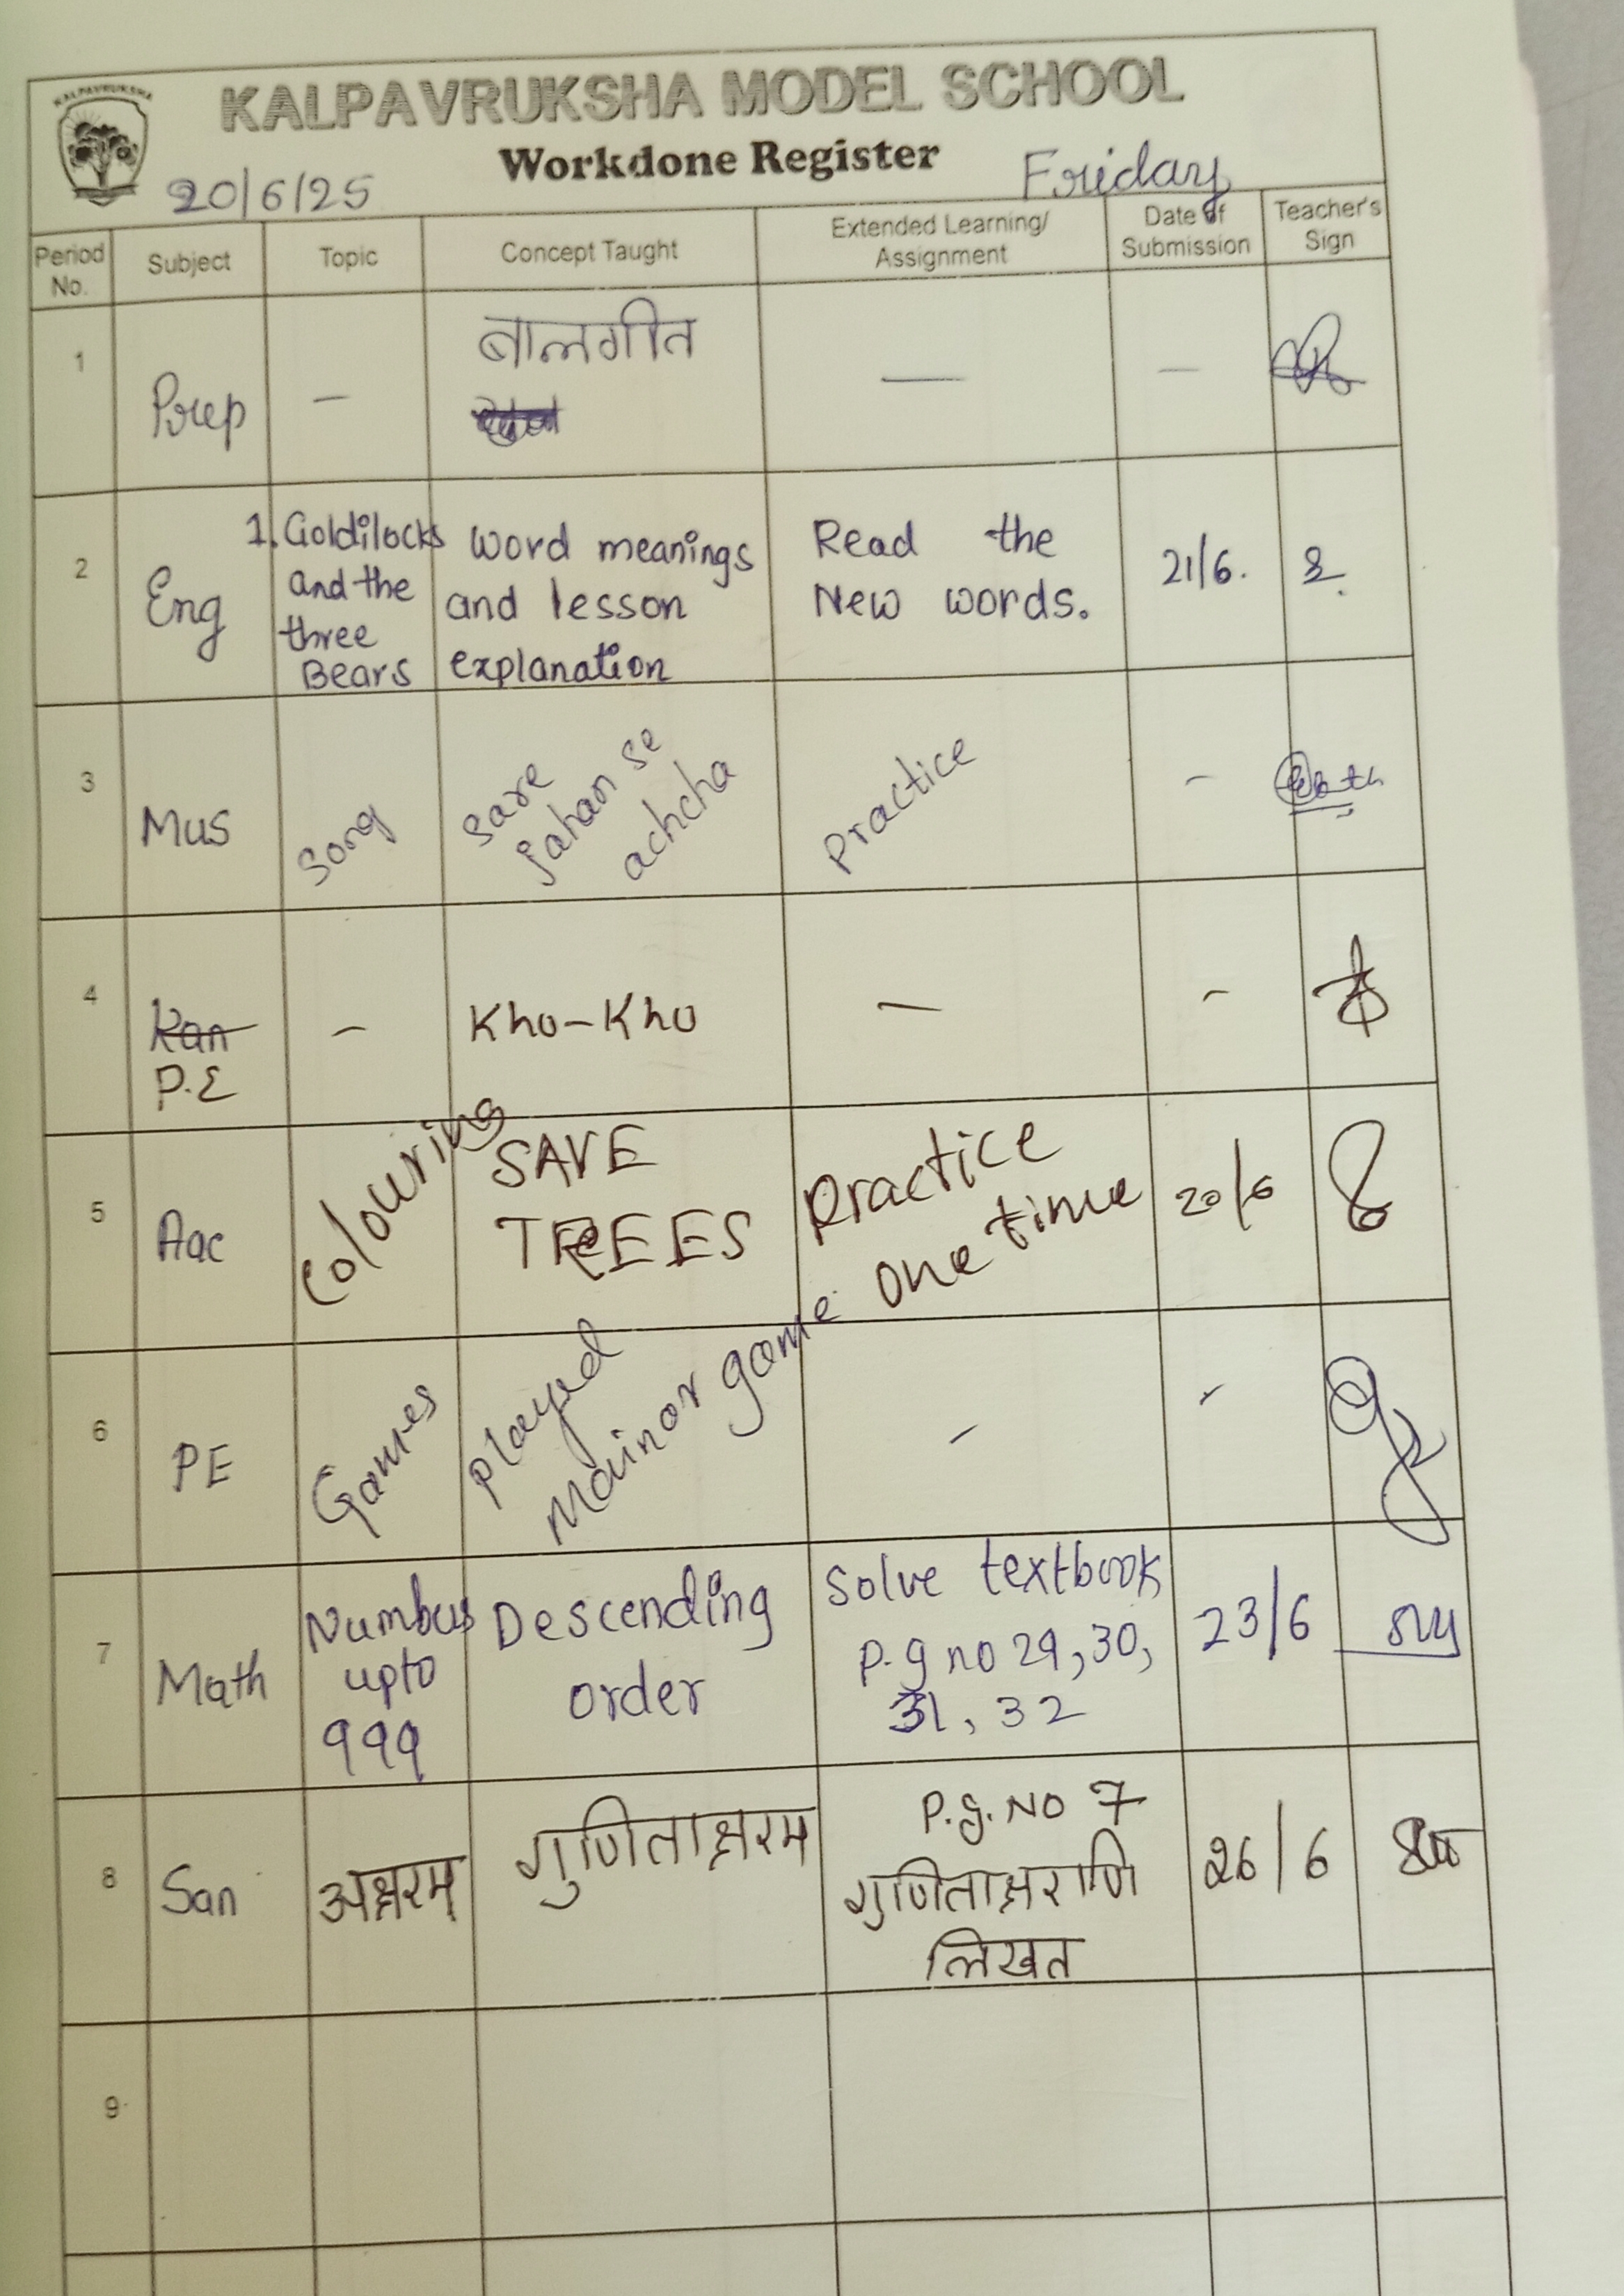 KALPAVRUKSHA
KALPAVRUKSHA MODEL SCHOOL
Workdone Register
20/6/25 Friday
Period No. Subject Topic Concept Taught Extended Learning/ Assignment Date of Submission Teacher's Sign
1 Prep - बालगीत — -
2 Eng 1. Goldilocks and the three Bears word meanings and lesson explanation Read the New words. 21/6.
3 Mus Song Sare Jahan se achcha practice -
4 Kan P.E - Kho-Kho — -
5 Aac Colouring SAVE TREES practice one time 20/6
6 PE Games played mainor game - -
7 Math Numbers upto 999 Descending order Solve textbook p.g no 29, 30, 31, 32 23/6
8 San अक्षरम गुणिताक्षरम P.g. NO 7 गुणिताक्षराणि लिखत 26/6
9